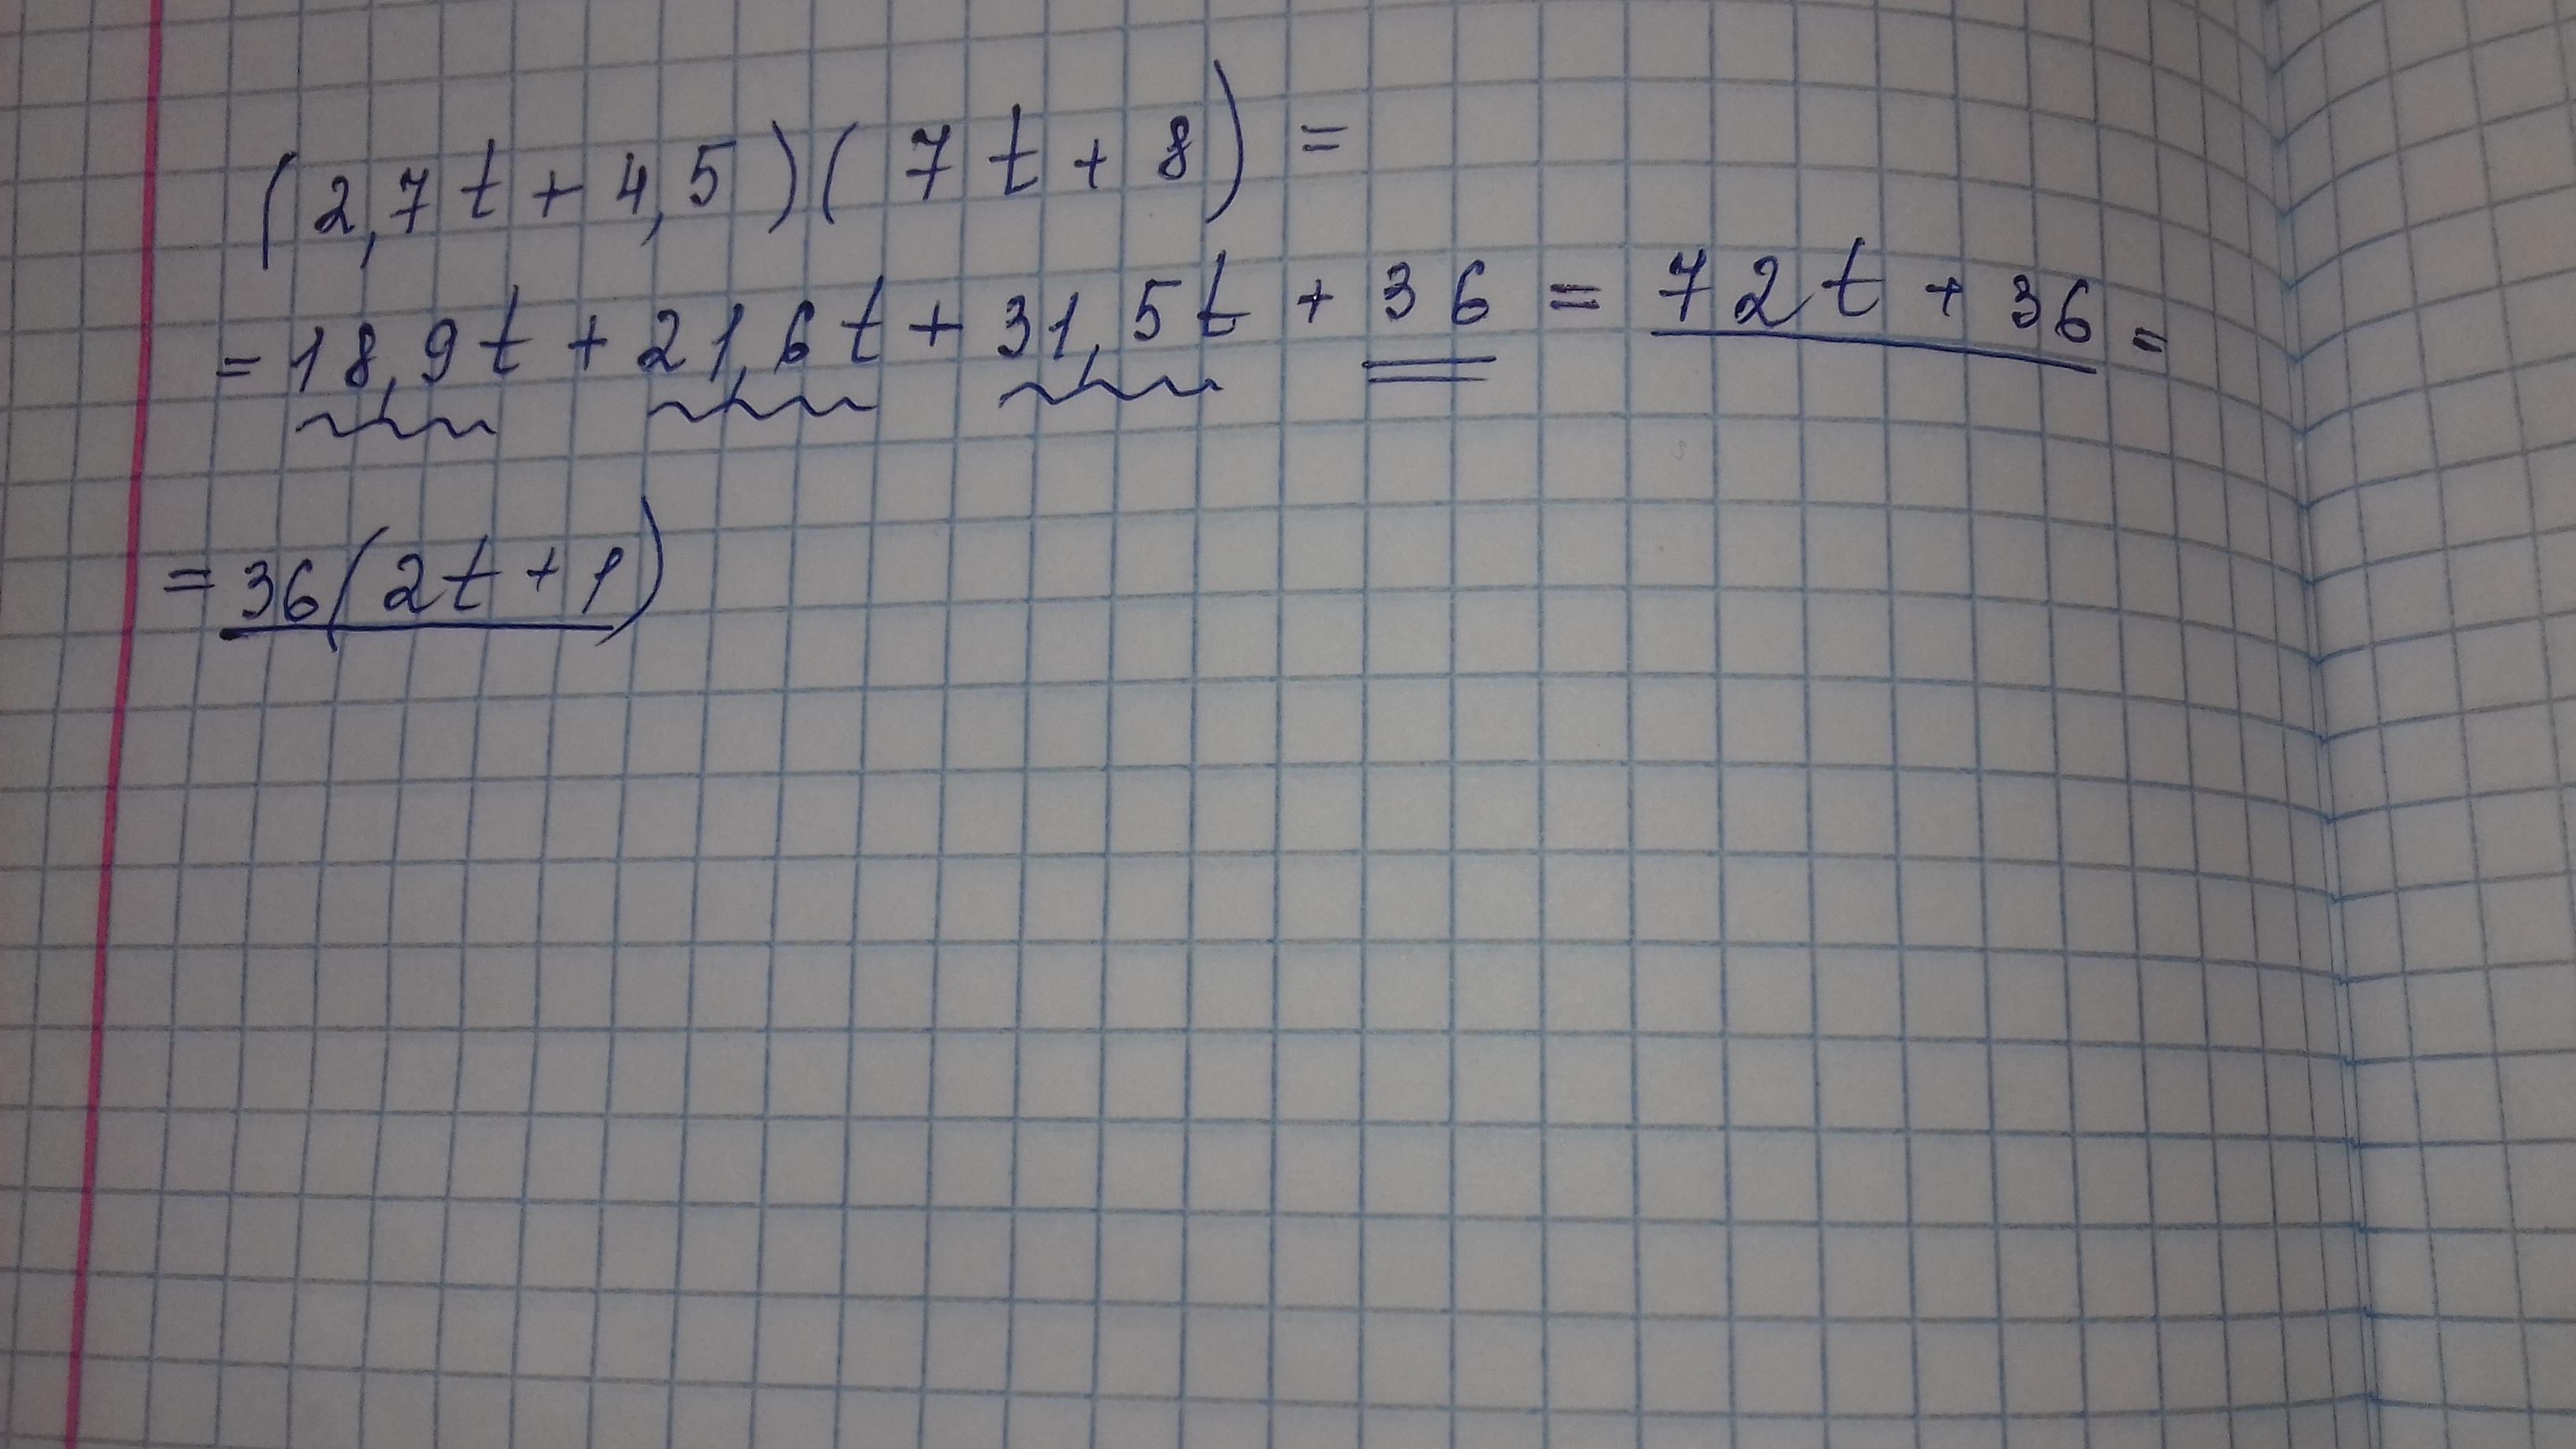 (2,7t+4,5)(7t+8)=
=18,9t+21,6t+31,5t+36=72t+36=
=36(2t+1)